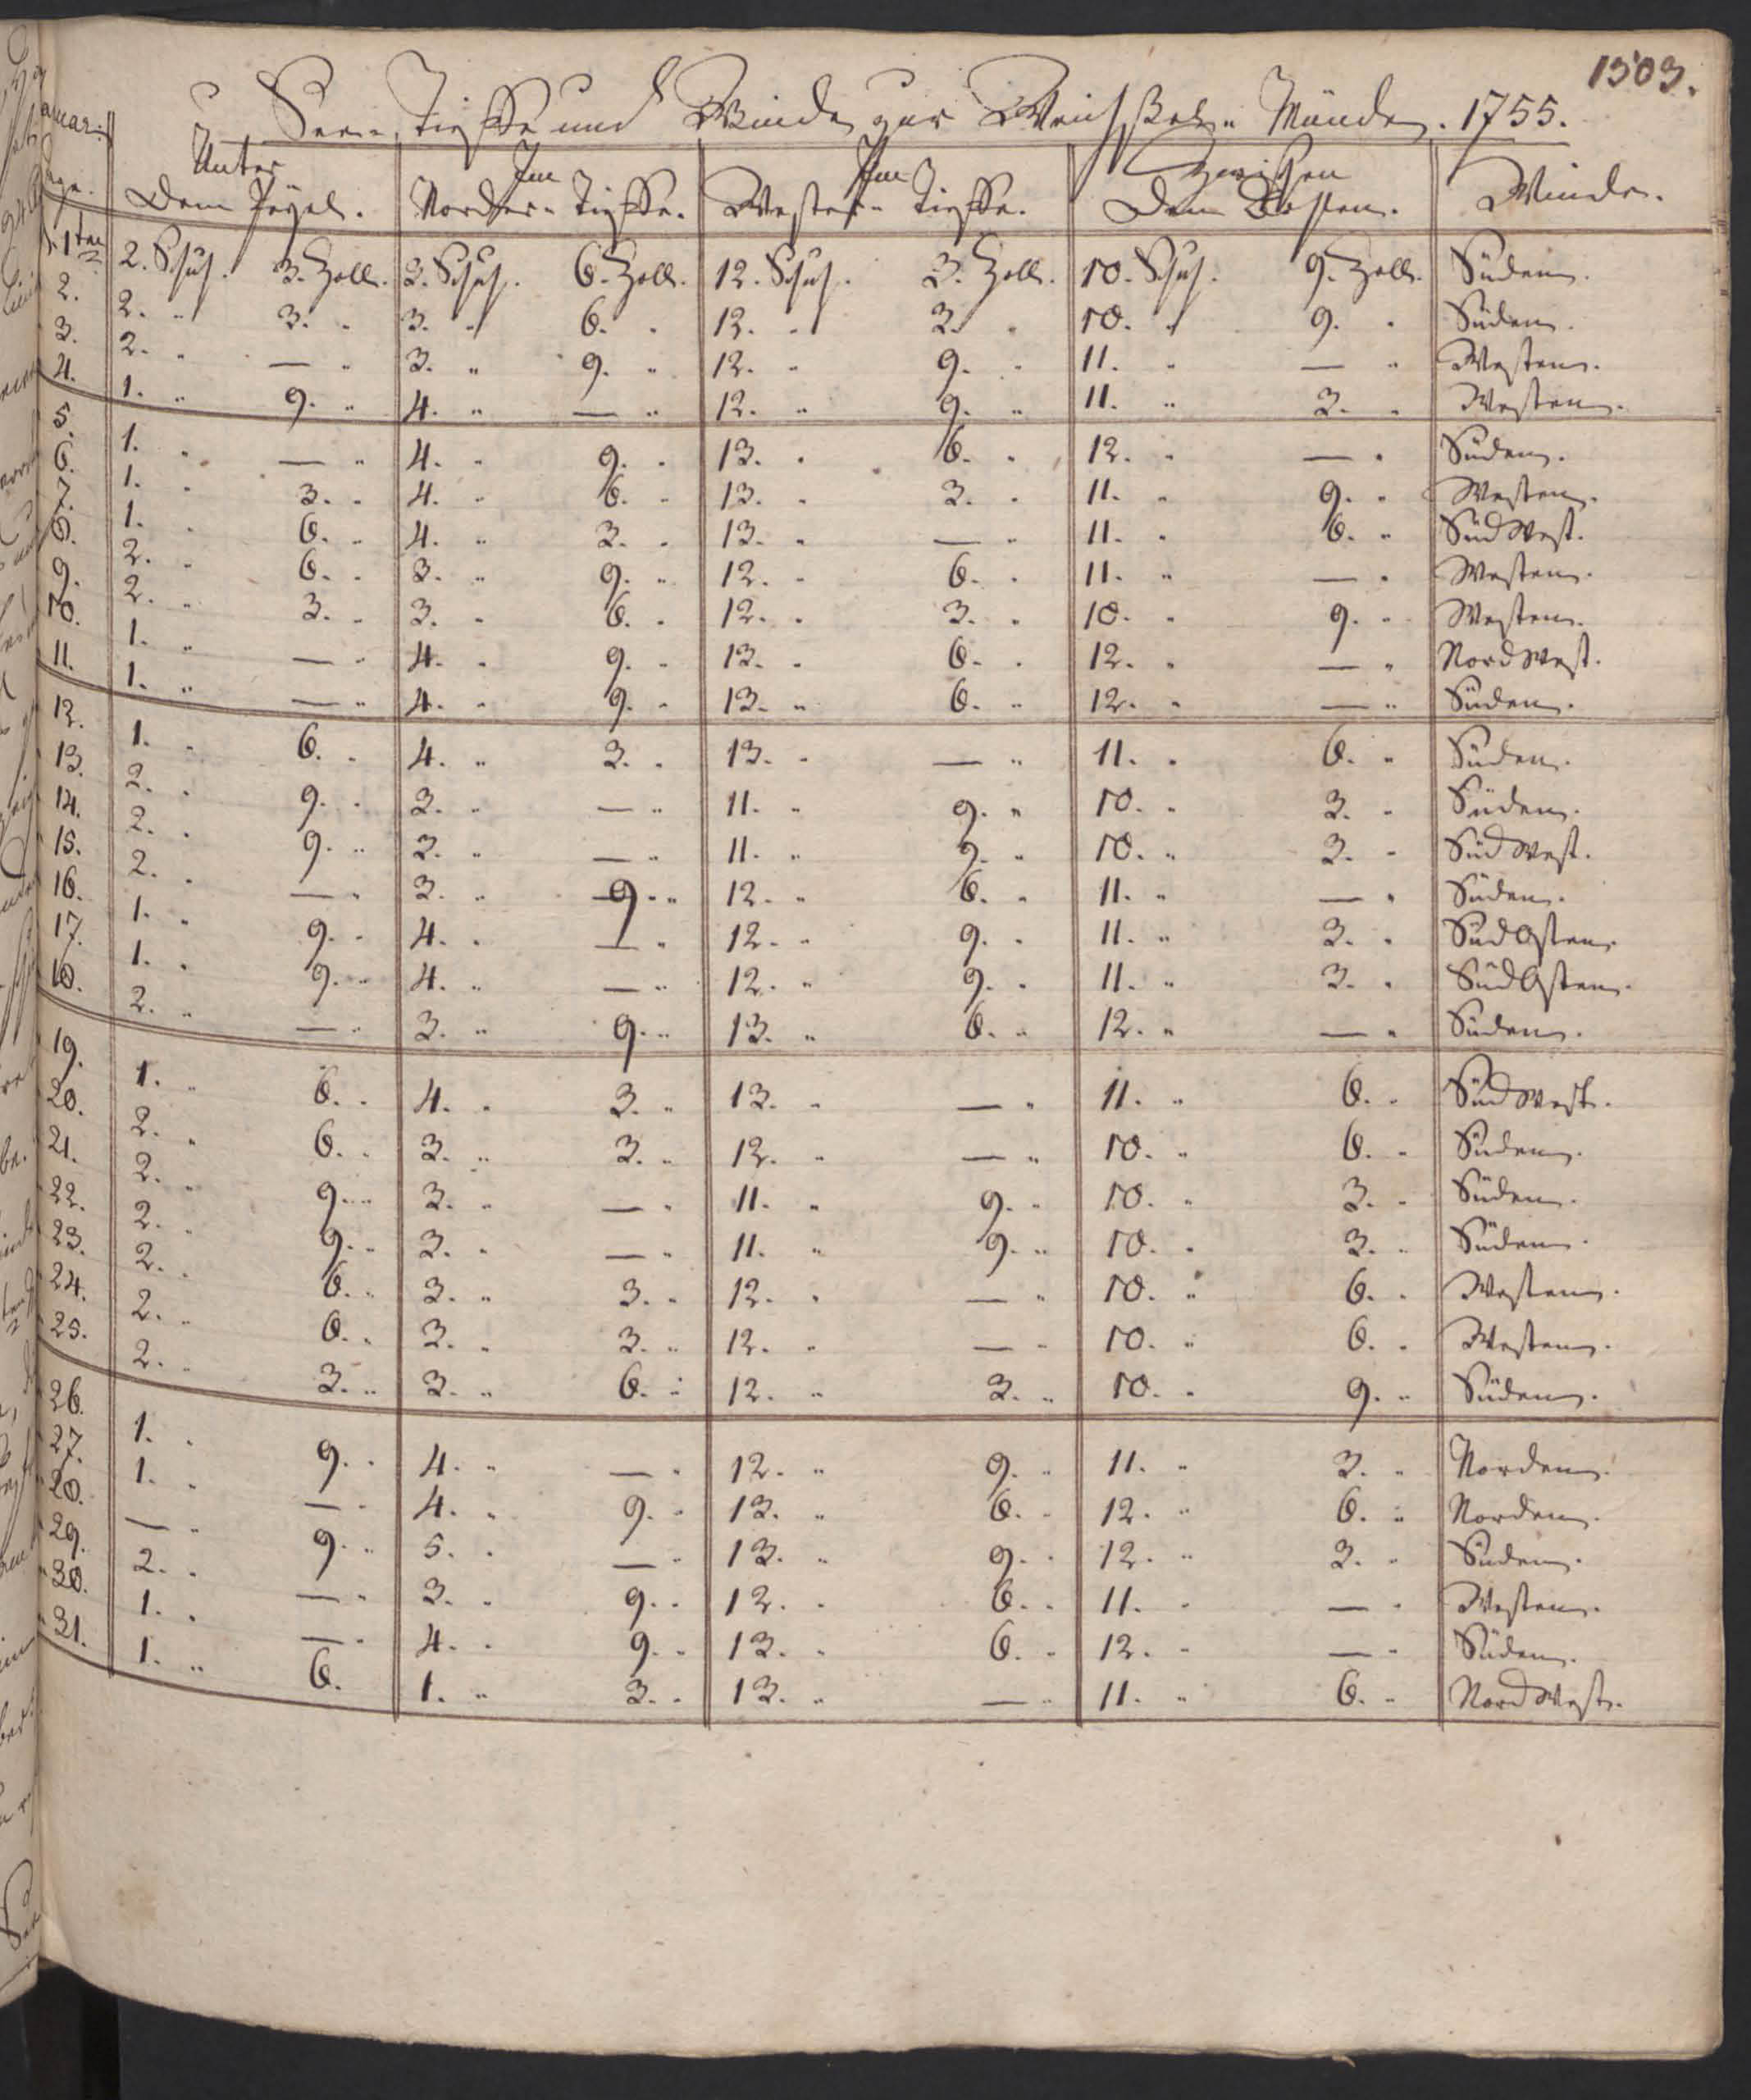 1503.
See-Tieffe und Winde zur Weichßel-Münde. 1755.
Januar:
Tage. Unter Dem Pegel. Im Norder-Tieffe. Im Wester-Tieffe. Zwischen Dem Kisten. Winde.
1ten 2. Schuh. 3. Zoll. 3. Schuh. 6. Zoll. 12. Schuh. 3. Zoll. 10. Schuh. 9. Zoll. Süden.
2. 2. " 3. " 3. " 6. " 12. " 3. " 10. " 9. " Süden.
3. 2. " — " 3. " 9. " 12. " 9. " 11. " — " Westen.
4. 1. " 9. " 4. " — " 12. " 9. " 11. " 3. " Westen.
5. 1. " — " 4. " 9. " 13. " 6. " 12. " — " Süden.
6. 1. " 3. " 4. " 6. " 13. " 3. " 11. " 9. " Westen.
7. 1. " 6. " 4. " 3. " 13. " — " 11. " 6. " SüdWest.
8. 2. " 6. " 3. " 9. " 12. " 6. " 11. " — " Westen.
9. 2. " 3. " 3. " 6. " 12. " 3. " 10. " 9. " Westen.
10. 1. " — " 4. " 9. " 13. " 6. " 12. " — " NordWest.
11. 1. " — " 4. " 9. " 13. " 6. " 12. " — " Süden.
12. 1. " 6. " 4. " 3. " 13. " — " 11. " 6. " Süden.
13. 2. " 9. " 3. " — " 11. " 9. " 10. " 3. " Süden.
14. 2. " 9. " 3. " — " 11. " 9. " 10. " 3. " SüdWest.
15. 2. " — " 3. " 9. " 12. " 6. " 11. " — " Süden.
16. 1. " 9. " 4. " — " 12. " 9. " 11. " 3. " SüdOsten.
17. 1. " 9. " 4. " — " 12. " 9. " 11. " 3. " SüdOsten.
18. 2. " — " 3. " 9. " 13. " 6. " 12. " — " Süden.
19. 1. " 6. " 4. " 3. " 13. " — " 11. " 6. " SüdWest.
20. 2. " 6. " 3. " 3. " 12. " — " 10. " 6. " Süden.
21. 2. " 9. " 3. " — " 11. " 9. " 10. " 3. " Süden.
22. 2. " 9. " 3. " — " 11. " 9. " 10. " 3. " Süden.
23. 2. " 6. " 3. " 3. " 12. " — " 10. " 6. " Westen.
24. 2. " 6. " 3. " 3. " 12. " — " 10. " 6. " Westen.
25. 2. " 3. " 3. " 6. " 12. " 3. " 10. " 9. " Süden.
26. 1. " 9. " 4. " — " 12. " 9. " 11. " 3. " Norden.
27. 1. " — " 4. " 9. " 13. " 6. " 12. " 6. " Norden.
28. — " 9. " 5. " — " 13. " 9. " 12. " 3. " Süden.
29. 2. " — " 3. " 9. " 12. " 6. " 11. " — " Westen.
30. 1. " — " 4. " 9. " 13. " 6. " 12. " — " Süden.
31. 1. " 6. 1. " 3. " 13. " — " 11. " 6. " NordWest.